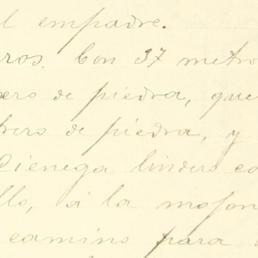 l empadre.
ros. Con 37 metro
ero de piedra, que
trero de piedra, y
Cienega lindero ca
llo, á la mojon
camino para